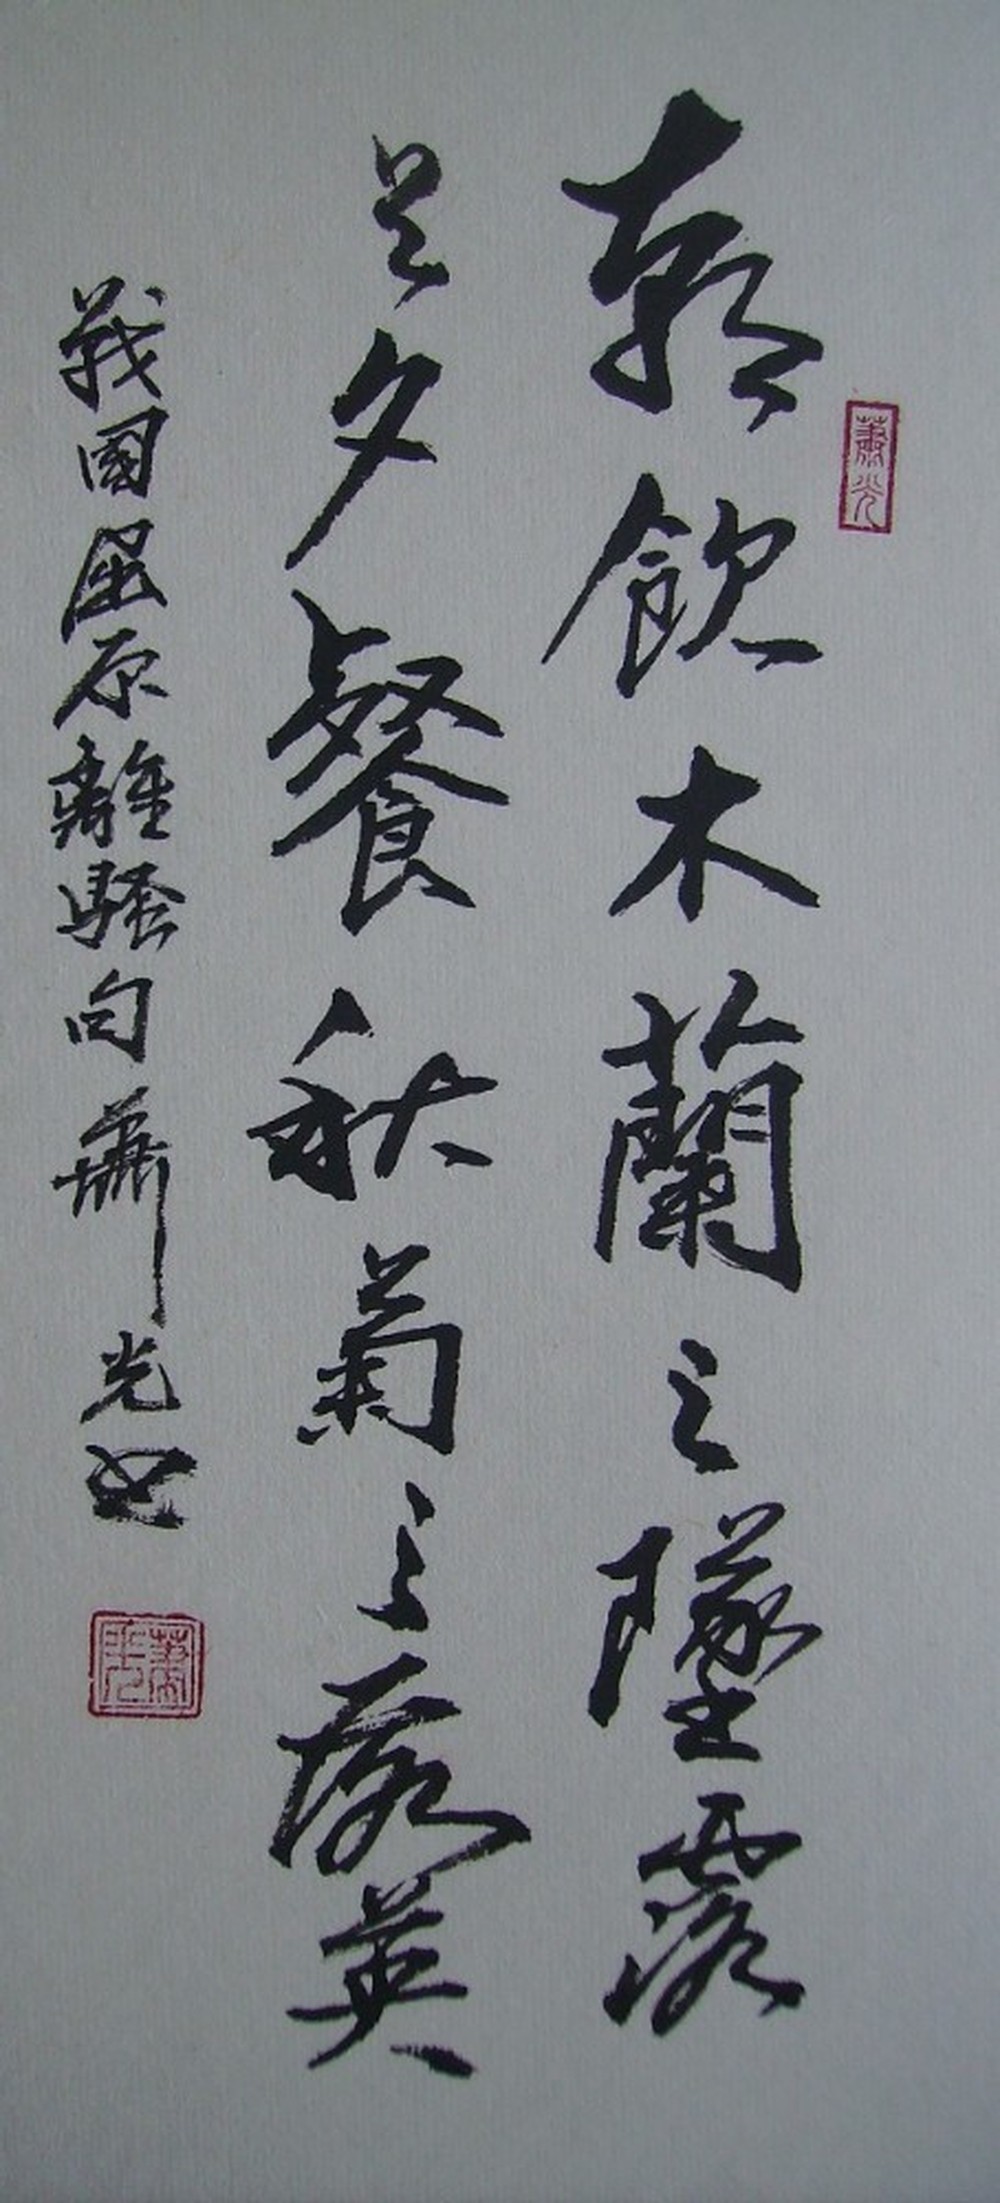 朝飲木蘭之墜露
兮夕餐秋菊之落英
戰國屈原離騷句蕭光書
蕭光
蕭光